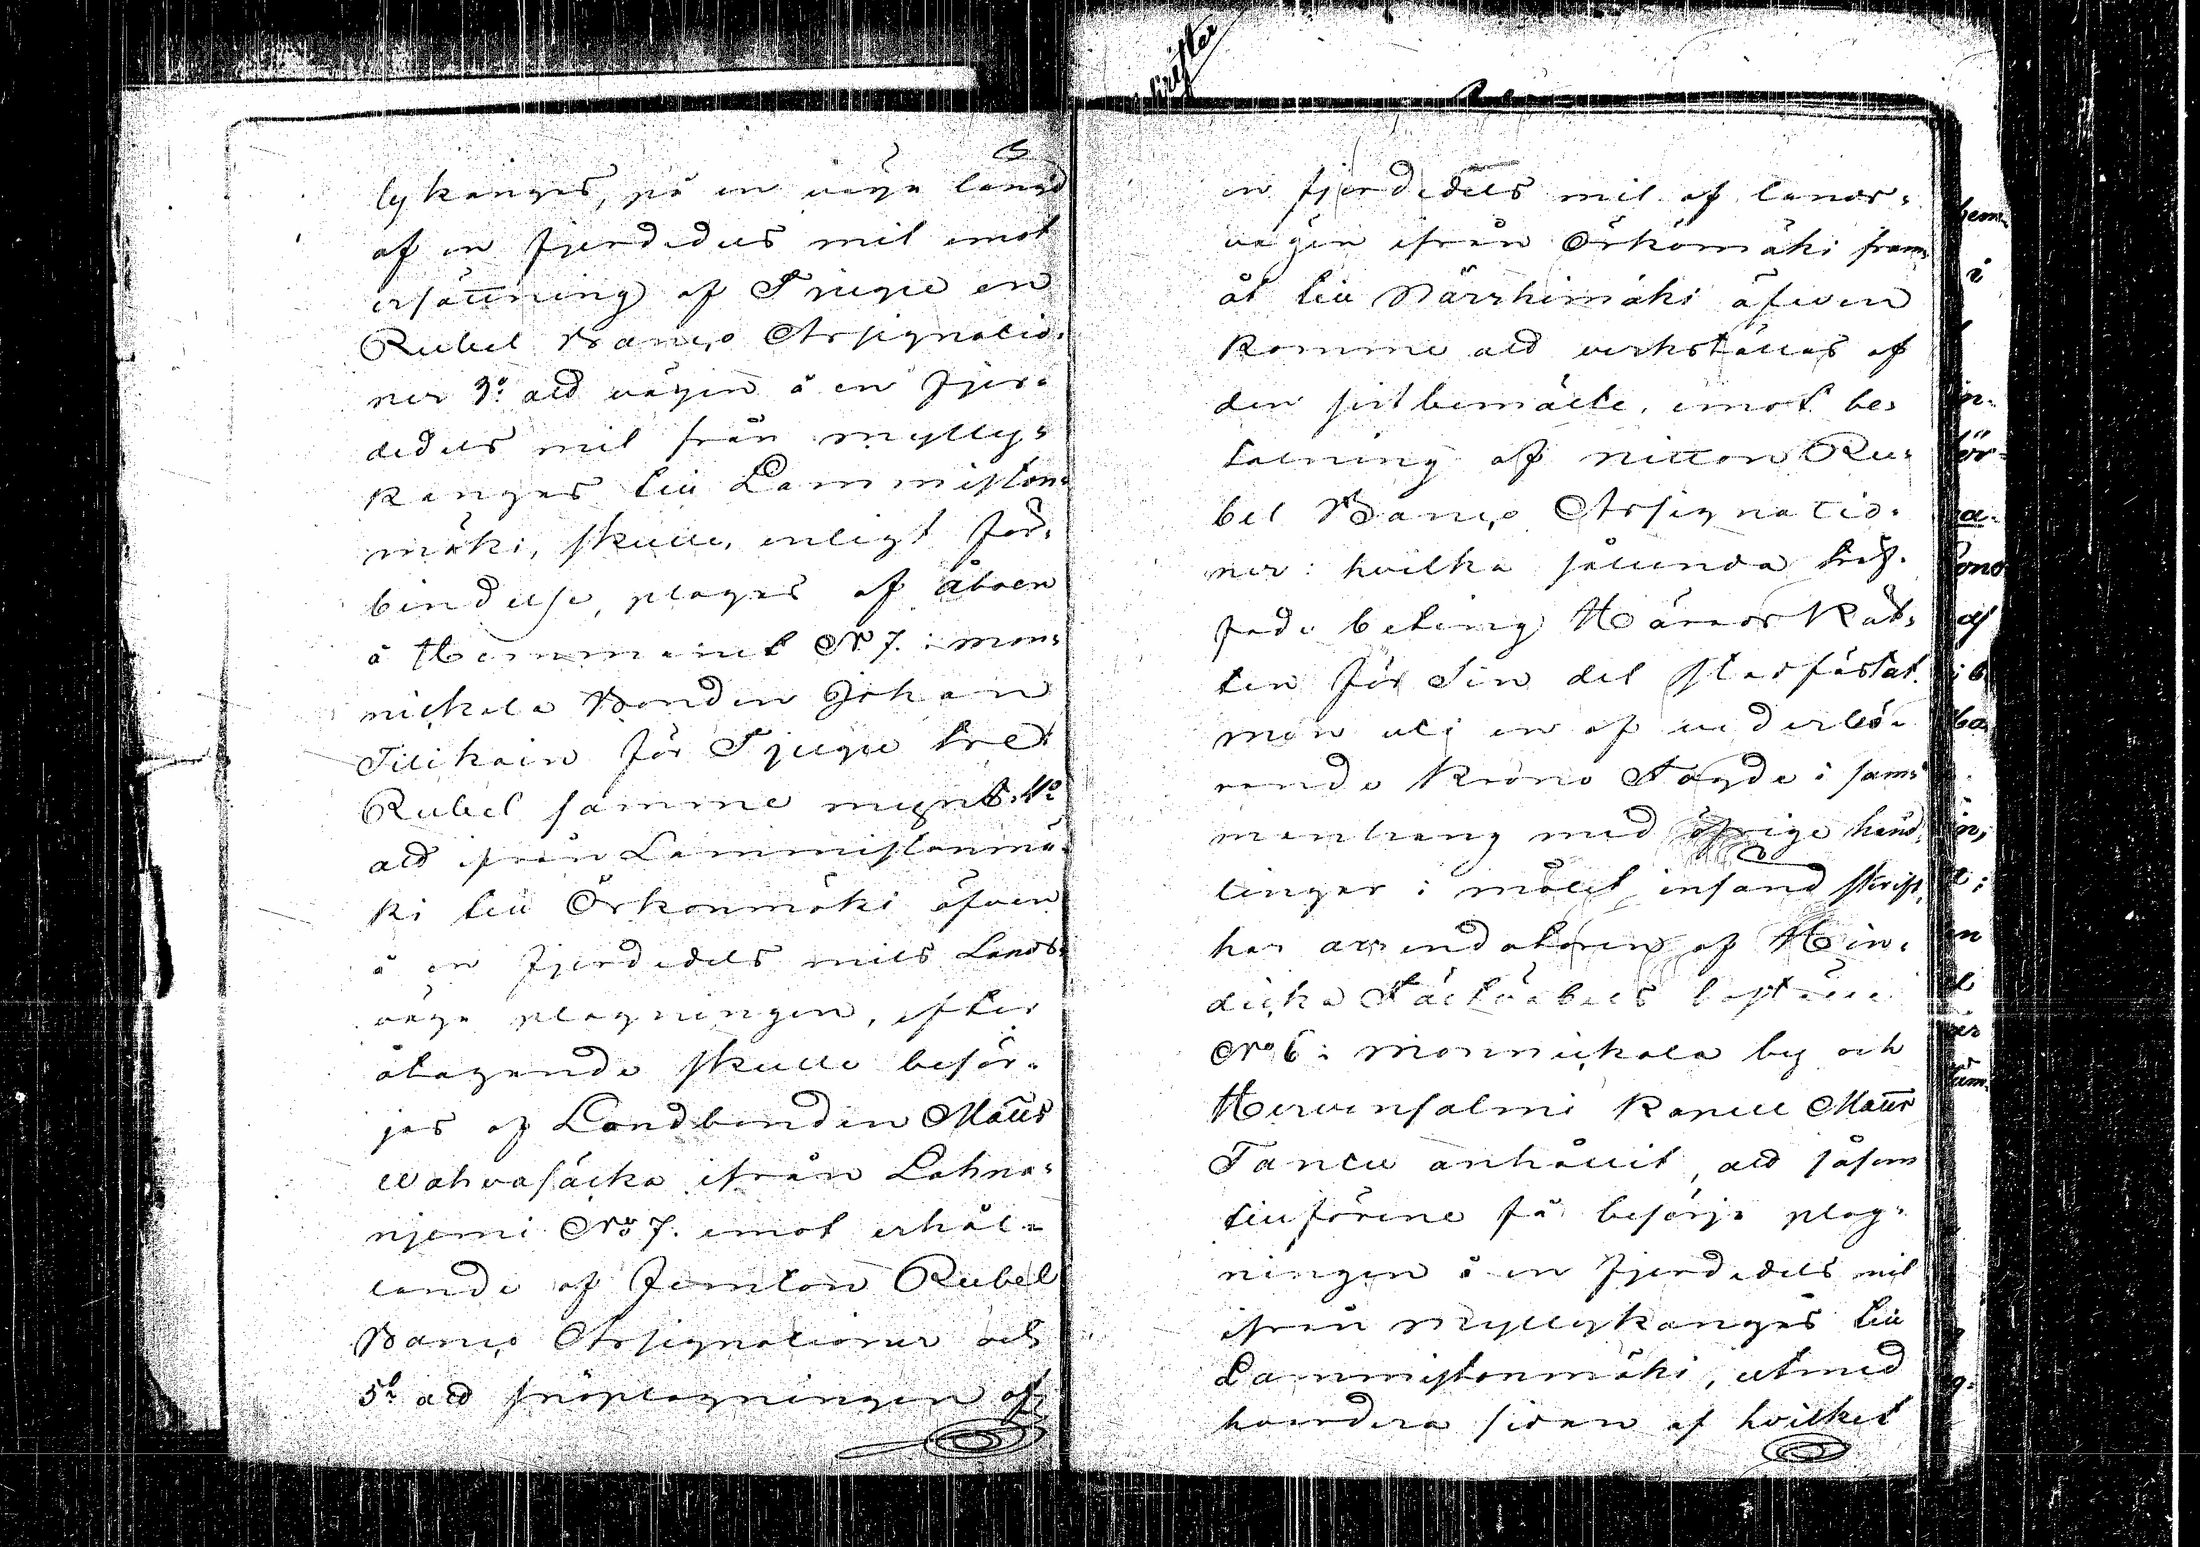 lykangas, på en väga längd
af en fjerdedels mil emot
ersättning af Tjugu en
Rubel Banco Assignatio-
ner 3:o att vägen å en fjer-
dedels mil från Mylly-
kangas till Lammiston-
mäki, skulle, enligt för-
bindelse, plogas af åboen
å Hemmanet No 7. i Mon-
nickala Bonden Johan
Tilikain för Tjugu tre
Rubel samme mynt. 4:o
att ifrån Lammistonmä-
ki till Örkonmäki äfven
å en fjerdedels mils Lands-
väga plogningen, efter
åtagande skulle besör-
jas af Landbonden Matts
Wahvasäska ifrån Lahna-
njemi No 7. emot erhål-
lande af femton Rubel
Banco Assignationer och
5:o att snöplogningen af
en fjerdedels mil af lands-
vägen ifrån Örkömäki fram-
åt till Närrhimäki äfven
komme att verkställas af
den sistbemälte, emot be-
talning af nitton Ru-
bel Banco Assignatio-
ner: hvilka sålunda träf-
fade beting Härads Rät-
ten för sin del stadfästat.
Men uti en af vederbö-
rande Krono Fogde i sam-
manhang med öfrige hand-
lingar i målet insänd skrift,
har arrendatoren af Hin-
dicka Fältväbels boställe
No 6 i Monnickala by och
Hirvensalmi Kapell Matts
Tancu anhållit, att såsom
tillförene få besörja plog-
ningen å en fjerdedels mil
ifrån Myllykangas till
Lammistonmäki, utmed
hvardera sidan af hvilket